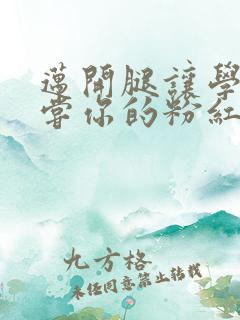 邁開腿讓學
當你的粉紅
九方格
未經同意禁止轉載